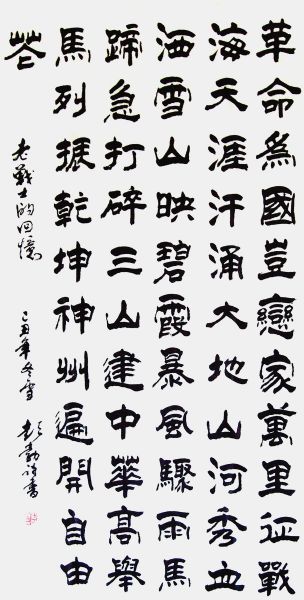 革命為國豈戀家萬里征戰
海天涯汗涌大地山河秀血
洒雪山映碧霞暴風驟雨馬
蹄急打碎三山建中華高舉
馬列振乾坤神州遍開自由
花
老戰士的回憶
己丑年冬雪 彭勃詩書